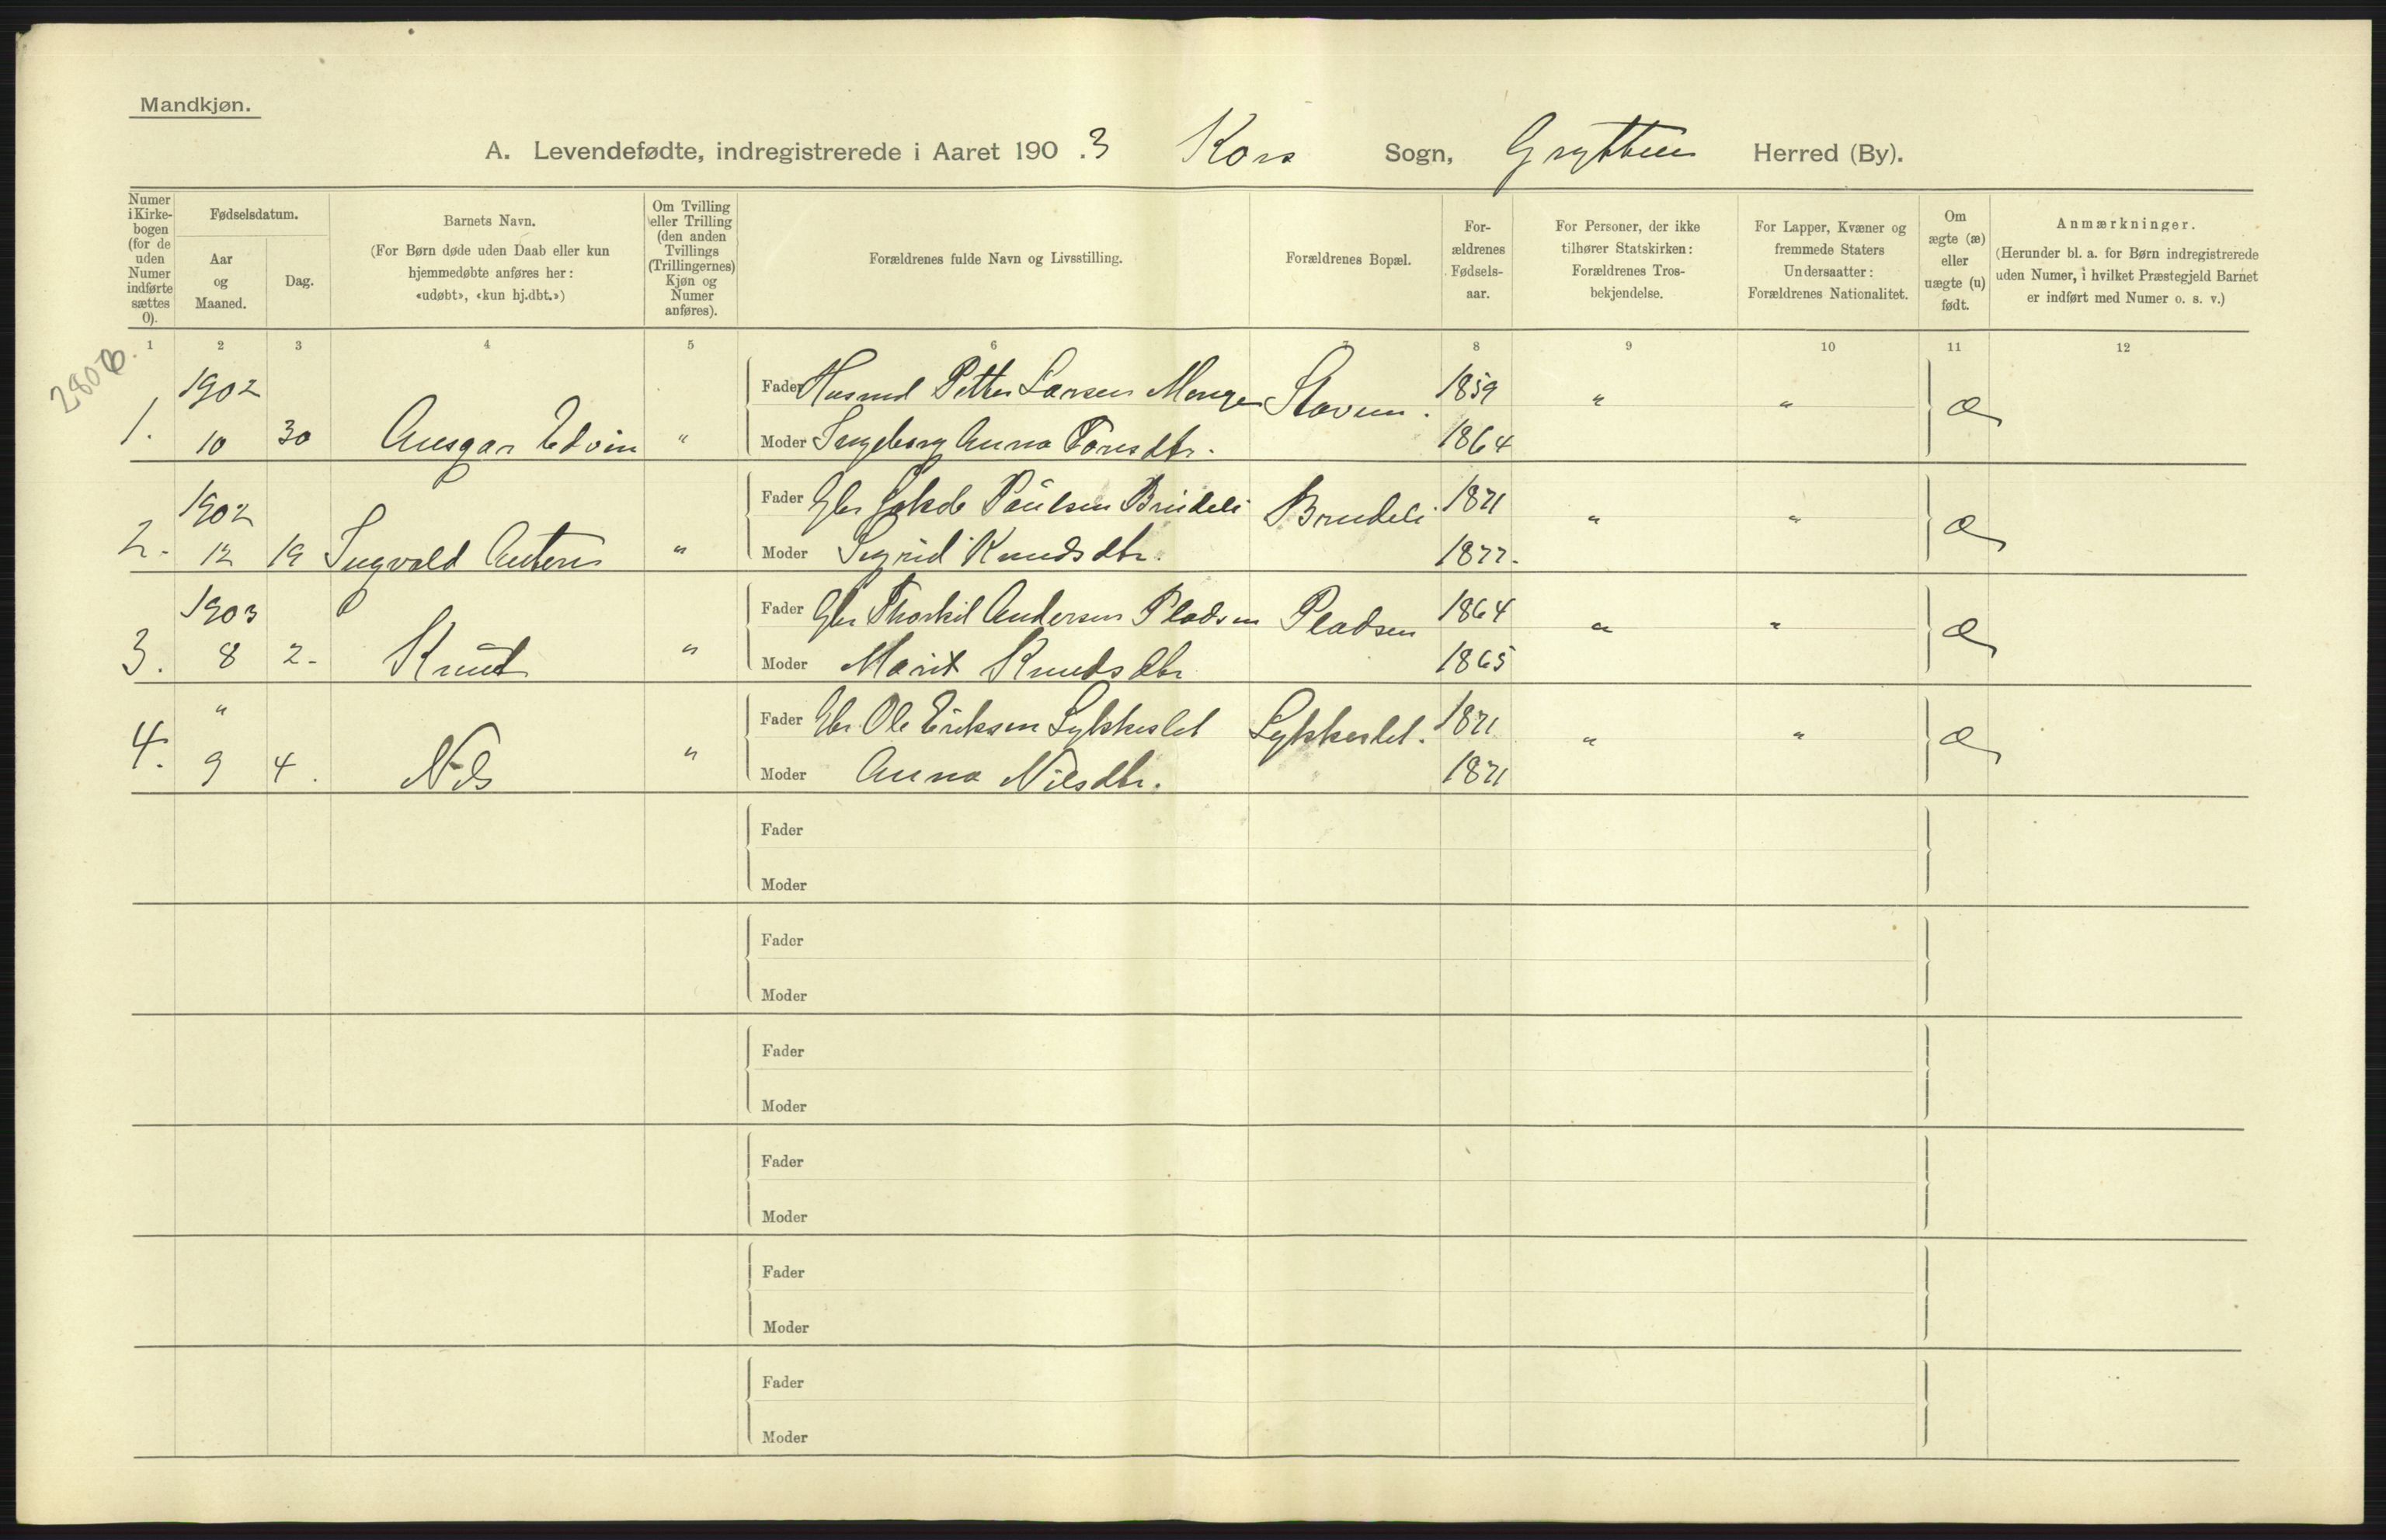 Mandkjøn.
A. Levendefødte, indregistrerede i Aaret 190 .3 Kors Sogn, Grytten Herred (By).
Numer i Kirkebogen (for de uden Numer indførte sættes 0).
Fødselsdatum.
Aar og Maaned.
Dag.
Barnets Navn.
(For Børn døde uden Daab eller kun
hjemmedøbte anføres her:
«udøbt», «kun hj.dbt.»)
Om Tvilling
eller Trilling
(den anden
Tvillings
(Trillingernes)
Kjøn og
Numer
anføres).
Forældrenes fulde Navn og Livsstilling.
Forældrenes Bopæl.
For-
ældrenes
Fødsels-
aar.
For Personer, der ikke
tilhører Statskirken:
Forældrenes Tros-
bekjendelse.
For Lapper, Kvæner og
fremmede Staters
Undersaatter:
Forældrenes Nationalitet.
Om
ægte (æ)
eller
uægte (u)
født.
Anmærkninger.
(Herunder bl. a. for Børn indregistrerede
uden Numer, i hvilket Præstegjeld Barnet
er indført med Numer o. s. v.)
1 2 3 4 5 6 7 8 9 10 11 12
1902 Fader Husmd Petter Larsen Monge Stavem. 1859 " " æ
1. 10 30 Ansgar Edvin " Moder Ingeborg Anna Toresdtr. 1864
1902 Fader Gbr Jakob Paulsen Brudeli Brudeli 1871 " " æ
2. 12 19 Ingvald Antons " Moder Sigrid Knudsdtr. 1877.
1903 Fader Gbr Thorkil Andersen Pladsen Pladsen 1864 " " æ
3. 8 2. Knud " Moder Marit Knudsdtr 1865
" Fader Gbr Ole Eriksen Lykkeslet Lykkeslet. 1871 " " æ
4. 9 4. Nils " Moder Anna Nilsdtr. 1871
Fader
Moder
Fader
Moder
Fader
Moder
Fader
Moder
Fader
Moder
Fader
Moder